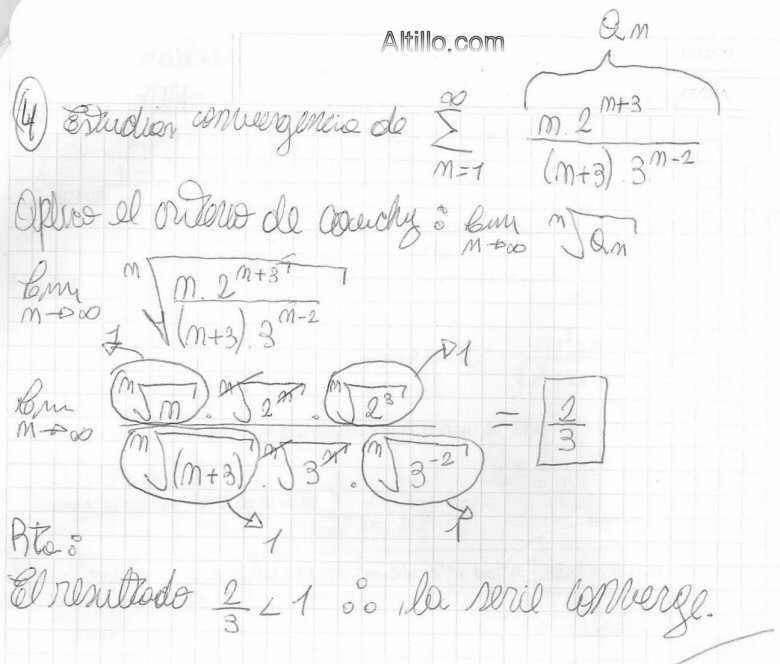 Altillo.com
an
④ Estudiar convergencia de ∑_{n=1}^{∞} \frac{n.2^{n+3}}{(n+3).3^{n-2}}
Aplico el criterio de cauchy: lim_{n→∞} \sqrt[n]{an}
lim_{n→∞} \sqrt[n]{\frac{n.2^{n+3}}{(n+3).3^{n-2}}}
1 1
lim_{n→∞} \frac{\sqrt[n]{n} . \sqrt[n]{2^n} . \sqrt[n]{2^3}}{\sqrt[n]{(n+3)} . \sqrt[n]{3^n} . \sqrt[n]{3^{-2}}} = \frac{2}{3}
1 1
Rta:
El resultado \frac{2}{3} < 1 ∴ la serie converge.